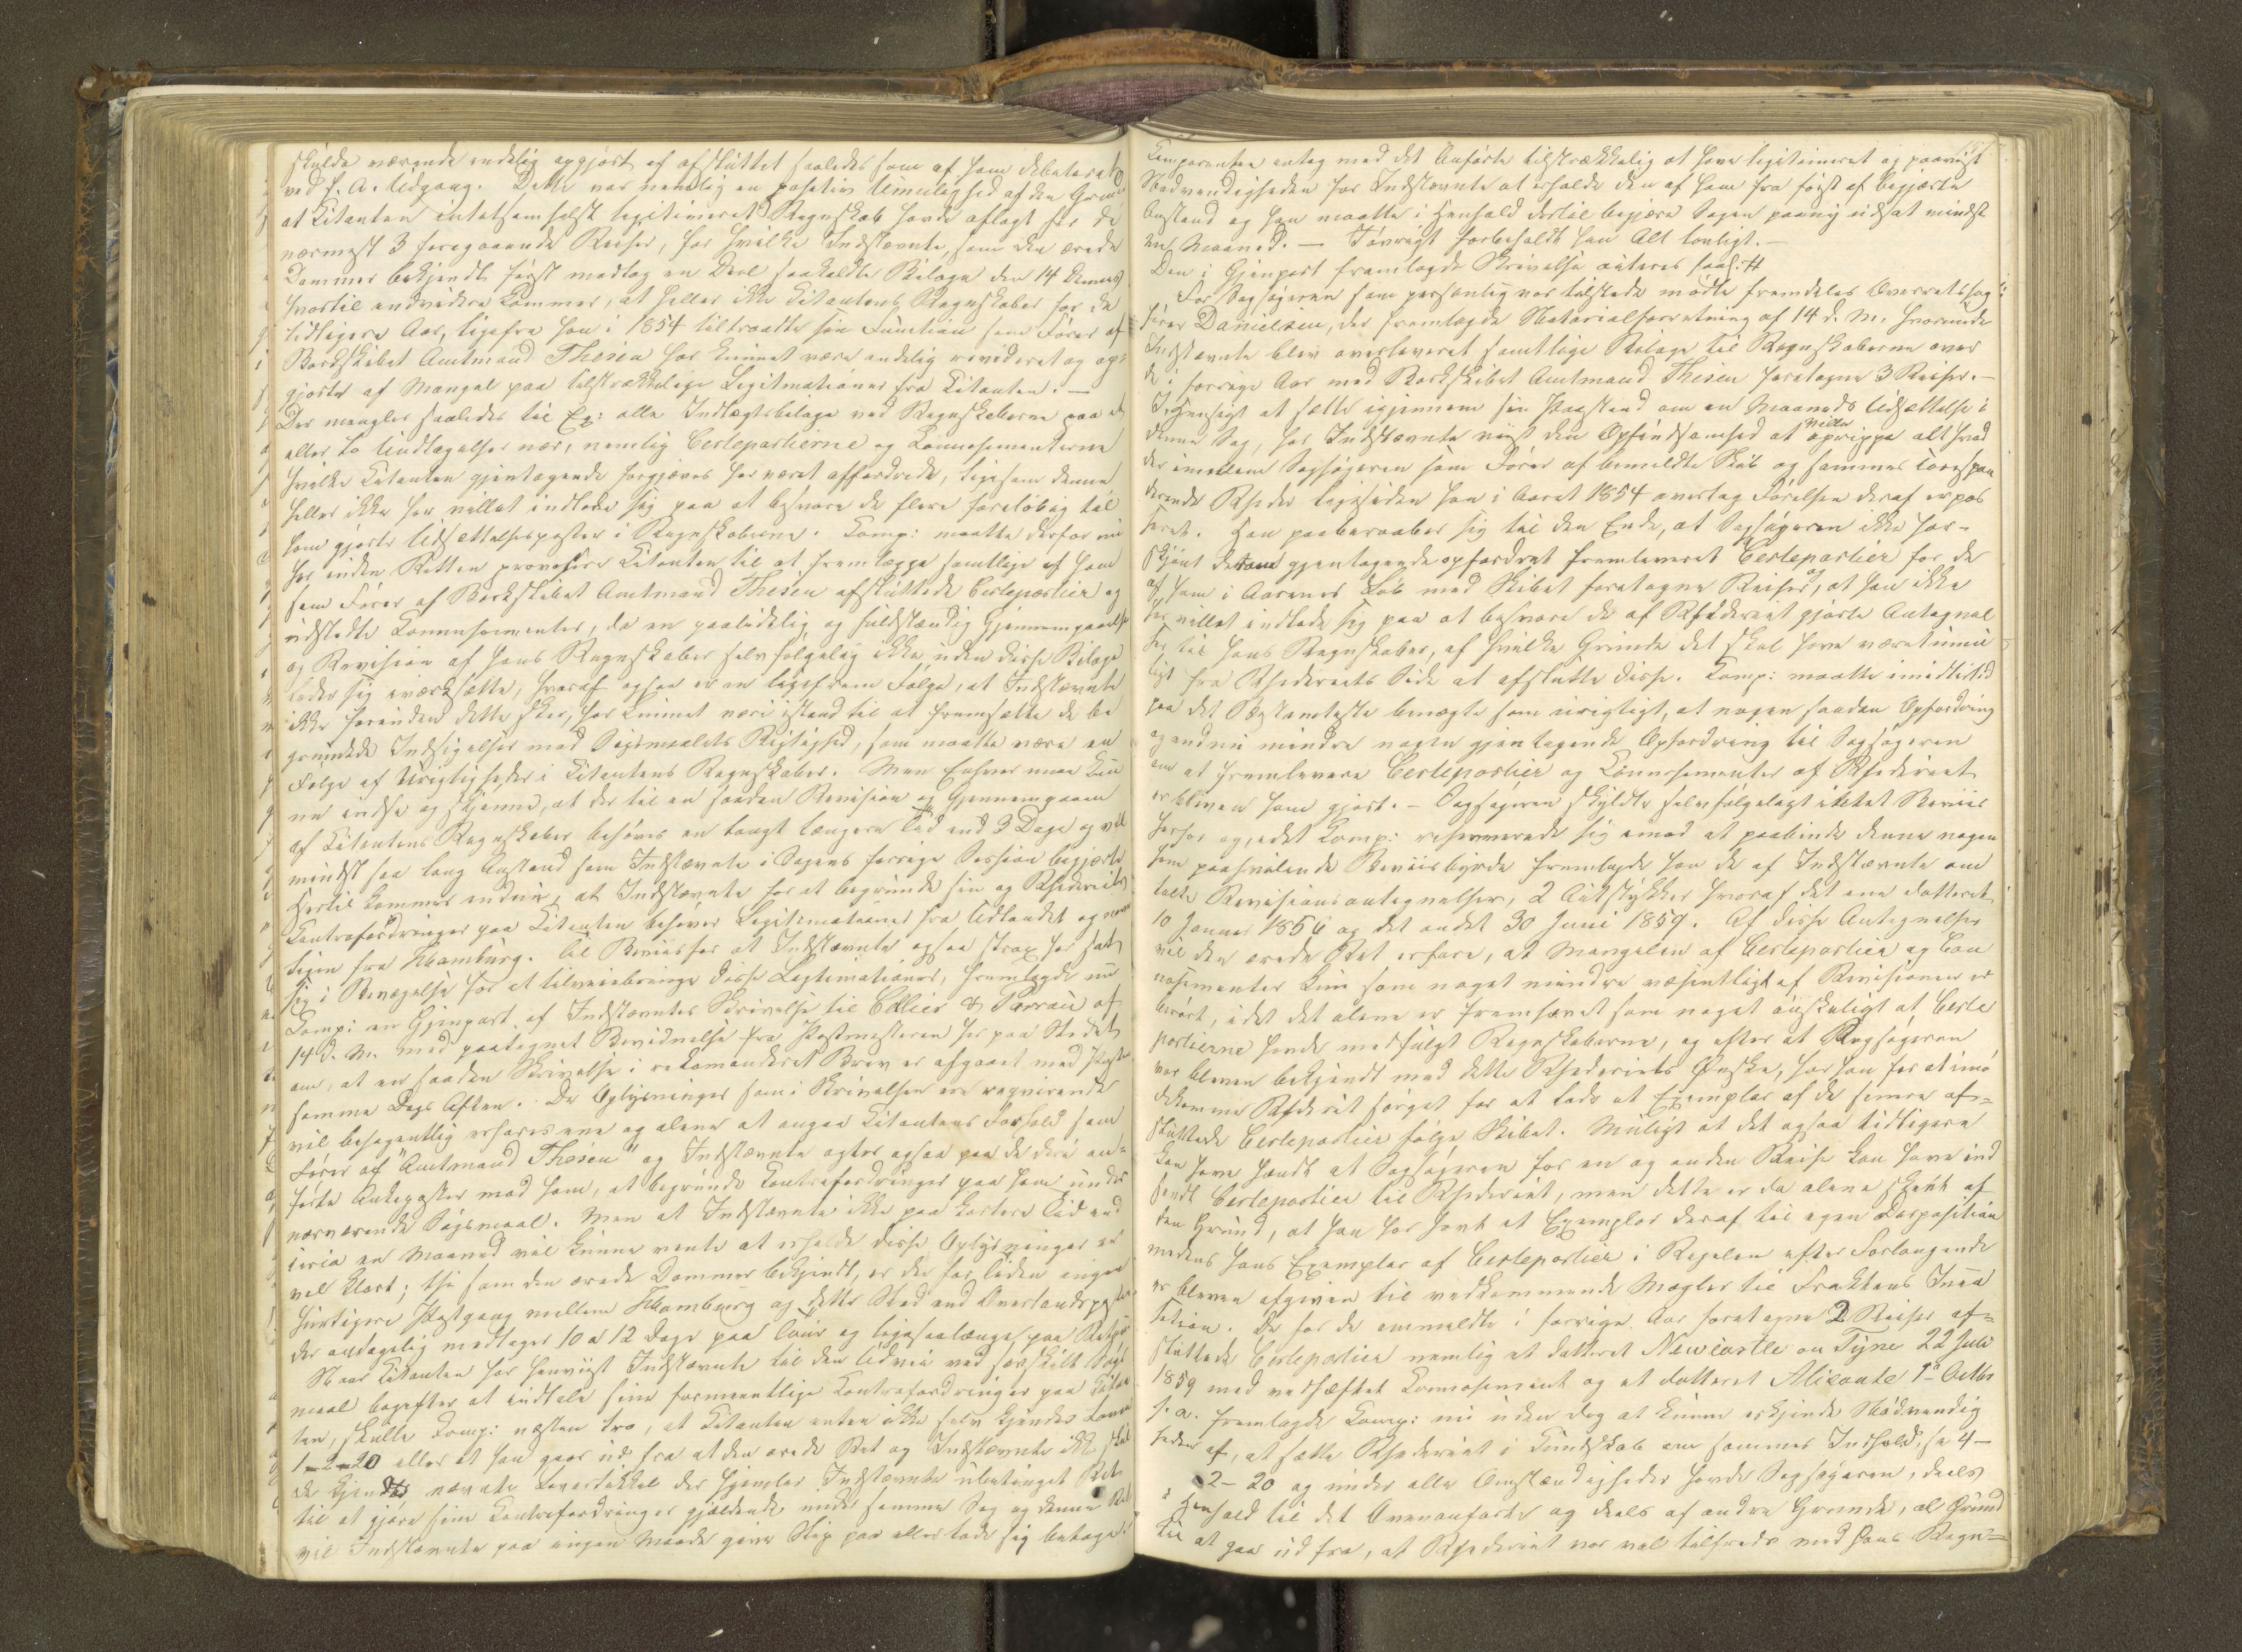 skulde værende endelig opgjort og afsluttet saaledes som af ham debiteret
ved f. A. Udgang. Dette var nemlig en positiv Umulighed af den Grund
at Citanten intetsomhelst legitimeret Regnskab havde aflagt for de
nærmest 3 foregaaende Reiser, for hvilke Indstævnte, som den ærede
Dommer bekjendt først modtog en Deel saakaldte Bilage den 14 dennes
hvortil endvidere kommer, at heller ikke Citantens Regnskaber for de
tidligere Aar, ligefra han i 1854 tiltraadte sin Function som Fører af
Barkskibet Amtmand Thesen har kunnet være endelig revideret og op-
gjorte af Mangel paa tilstrækkelige Legitimationer fra Citanten. —
Der mangler saaledes til Ex: alle Indtægtsbilage ved Regnskaberne paa et
eller to Undtagelser nær, nemlig Certepartierne og Connosementerne
hvilke Citanten gjentagende forgjæves har været affordrede, ligesom denne
heller ikke har villet indlade sig paa at besvare de flere foreløbig til
ham gjorte Udsættelsesposter i Regnskaberne. Comp: maatte derfor nu
her inden Retten provocere Citanten til at fremlægge samtlige af ham
som Fører af Barkskibet Amtmand Thesen afsluttede Certepartier og
udstedte Connosementer, da en paalidelig og fuldstændig Gjennemgaaelse
og Revision af hans Regnskaber selvfølgelig ikke uden disse Bilage
lader sig iværksætte, hvoraf ogsaa er en ligefrem Følge, at Indstævnte
ikke forinden dette sker, har kunnet være istand til at fremsætte de be
grundede Indsigelser mod Søgsmaalets Rigtighed, som maatte være en
Følge af Urigtigheder i Citantens Regnskaber. Men Enhver maa kun
ne indse og skjønne, at der til en saadan Revision og Gjennemgaaen
af Citantens Regnskaber behøves en langt længere Tid end 3 Dage og vel
mindst saa lang Anstand som Indstævnte i Sagens forrige Session begjærte
Hertil kommer endnu, at Indstævnte for at begrunde sin og Rhederiets
Contrafordringer paa Citanten behøver Legitimationer fra Udlandet og navn
ligen fra Hamburg. Til Beviis for at Indstævnte ogsaa strax har sat
sig i Bevægelse for at tilveiebringe disse Legitimationer, fremlagde nu
Comp: en Gjenpart af Indstævntes Skrivelse til Ellier & Parrau af
14 d. M. med paategnet Bevidnelse fra Postmesteren her paa Stedet
om, at en saadan Skrivelse i rekomanderet Brev er afgaaet med Posten
samme Dags Aften. De Oplysninger som i Skrivelsen ere requirerede
vil behagentlig erfares ene og alene at angaa Citantens Forhold som
Fører af "Amtmand Thesen" og Indstævnte agter ogsaa paa de deri an-
førte Ankeposter mod ham, at begrunde Contrafordringer paa ham under
nærværende Søgsmaal. Men at Indstævnte ikke paa kortere Tid end
circa en Maaned vil kunne vente at erholde disse Oplysninger er
vel klart; thi som den ærede Dommer bekjendt, er der for Tiden ingen
hurtigere Postgang mellem Hamburg og dette Sted end Overlandsposten
der andagelig medtager 10 a 12 Dage paa Tour og ligesaalænge paa Retour
Naar Citanten har henviist Indstævnte til den Udvei ved særskilt Søgs
maal bagefter at indtale sine formeentlige Contrafordringer paa Citan
ten, skulle Comp: næsten tro, at Citanten enten ikke selv kjender Lovens
1-2-20 eller at han gaar ud fra at den ærede Ret og Indstævnte ikke skal
de kjende nævnte Lovartikkel der hjemler Indstævnte ubetinget Ret
til at gjøre sine Contrafordringer gjældende under samme Sag og denne Ret
vil Indstævnte paa ingen Maade give Slip paa eller lade sig betage.
Comparenten antog med det Anførte tilstrækkelig at have legitimeret og paaviist
Nødvendigheden for Indstævnte at erholde den af ham fra først af begjærte
Anstand og han maatte i Henhold dertil begjære Sagen paany udsat mindst
en Maaned. — Forøvrigt forbeholdt han Alt lovligt. —
Den i Gjenpart fremlagde Skrivelse acteres saal: #
For Sagsøgeren som personlig var tilstede mødte fremdeles Overretssag
fører Danielsen, der fremlagde Notarialforretning af 14 d. M. hvorunder
Indstævnte blev overleveret samtlige Bilage til Regnskaberne over
de i forrige Aar med Barkskibet Amtmand Thesen foretagne 3 Reiser. —
I Hensigt at sætte igjennem sin Paastand om en Maaneds Udsættelse i
denne Sag, har Indstævnte viist den Opfindsomhed at ville oprippe alt hvad
der imellem Sagsøgeren som Fører af bemeldte Skib og sammes Correspon
derende Rheder ligesiden han i Aaret 1854 overtog Førelsen deraf er pas
seret. Han paaberaaber sig til den Ende, at Sagsøgeren ikke har-
skjønt gjentagende opfordret fremleveret Certepartier for de
af ham i Aarenes Løb med Skibet foretagne Reiser, og at han ikke
har villet indlade sig paa at besvare de af Rhederiet gjorte Antegnel
ser til hans Regnskaber, af hvilke Grunde det skal have været umu
ligt fra Rhederiets Side at afslutte disse. Comp: maatte imidlertid
paa det Bestemteste benægte som urigtigt, at nogen saadan Opfordring
og endnu mindre nogen gjentagende Opfordring til Sagsøgeren
om at fremlevere Certepartier og Connosementer af Rhederiet
er bleven ham gjort. — Sagsøgeren skyldte selvfølgeligt intet Beviis
herfor og, idet Comp: reserverede sig imod at paabinde denne nogen
ham paahvilende Beviisbyrde fremlagde han de af Indstævnte om
talte Revisionsantegnelser, 2 Actstykker hvoraf det ene datteret
10 Januar 1856 og det andet 30 Juni 1859. Af disse Antegnelser
vil den ærede Ret erfare, at Mangelen af Certepartier og Con
nosementer kun som noget mindre væsentligt af Revisionen er
berørt, idet det alene er fremhævet som noget ønskeligt at Certe
partierne havde medfulgt Regnskaberne, og efter at Sagsøgeren
var bleven bekjendt med dette Rhederiets Ønske, har han for at imø
dekomme Rhederiet sørget for at lade et Exemplar af de senere af-
sluttede Certepartier følge Skibet. Muligt at det ogsaa tidligere
kan have hændt at Sagsøgeren for en og anden Reise kan have ind
sendt Certepartier til Rhederiet, men dette er da alene skeet af
den Grund, at han har havt et Exemplar deraf til egen Disposition
medens hans Exemplar af Certepartier i Regelen efter Forlangende
er bleven afgiven til vedkommende Mægler til Fraktens Inca
sation. De for de ommeldte i forrige Aar foretagne 2 Reiser af-
sluttede Certepartier nemlig et datteret Newcastle on Tyne 22 Juli
1859 med vedhæftet Connosement og et datteret Alicante 1 Octbr
s. a. fremlagde Comp: nu uden dog at kunne erkjende Nødvendig
heden af, at sætte Rhederiet i Kundskab om sammes Indhold, se 4-
2-20 og under alle Omstændigheder havde Sagsøgeren, deels
i Henhold til det Ovenanførte og deels af andre Grunde, al Grund
til at gaa ud fra, at Rhederiet var vel tilfreds med hans Regn-